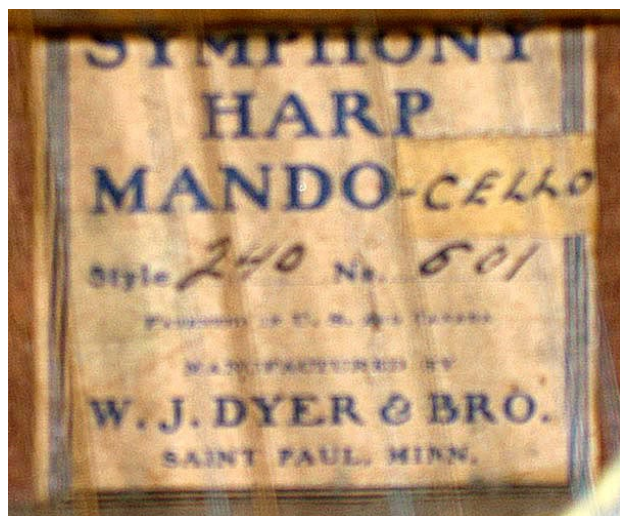 SYMPHONY
HARP
MANDO-CELLO
Style 240 No. 601
Patented in U. S. and Canada
MANUFACTURED BY
W. J. DYER & BRO.
SAINT PAUL, MINN.